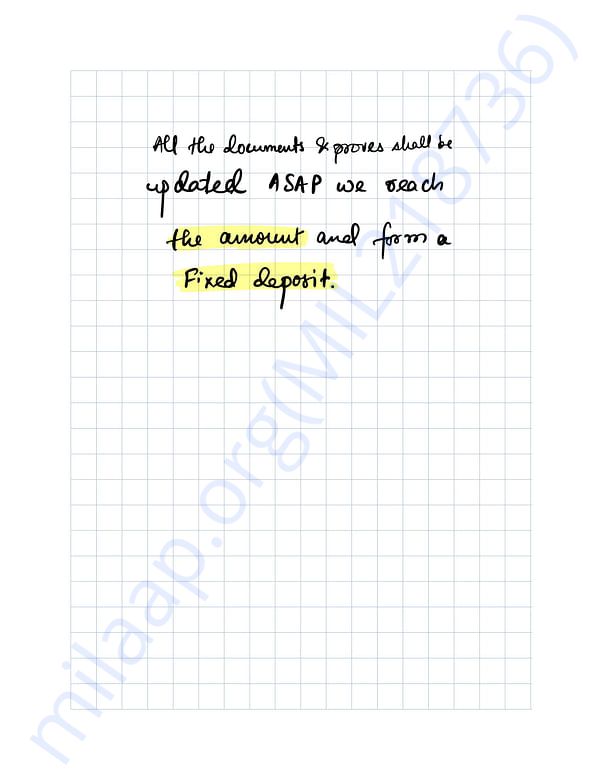 All the documents & proves shall be
updated ASAP we reach
the amount and form a
Fixed deposit.
milaap.org(MIL218736)